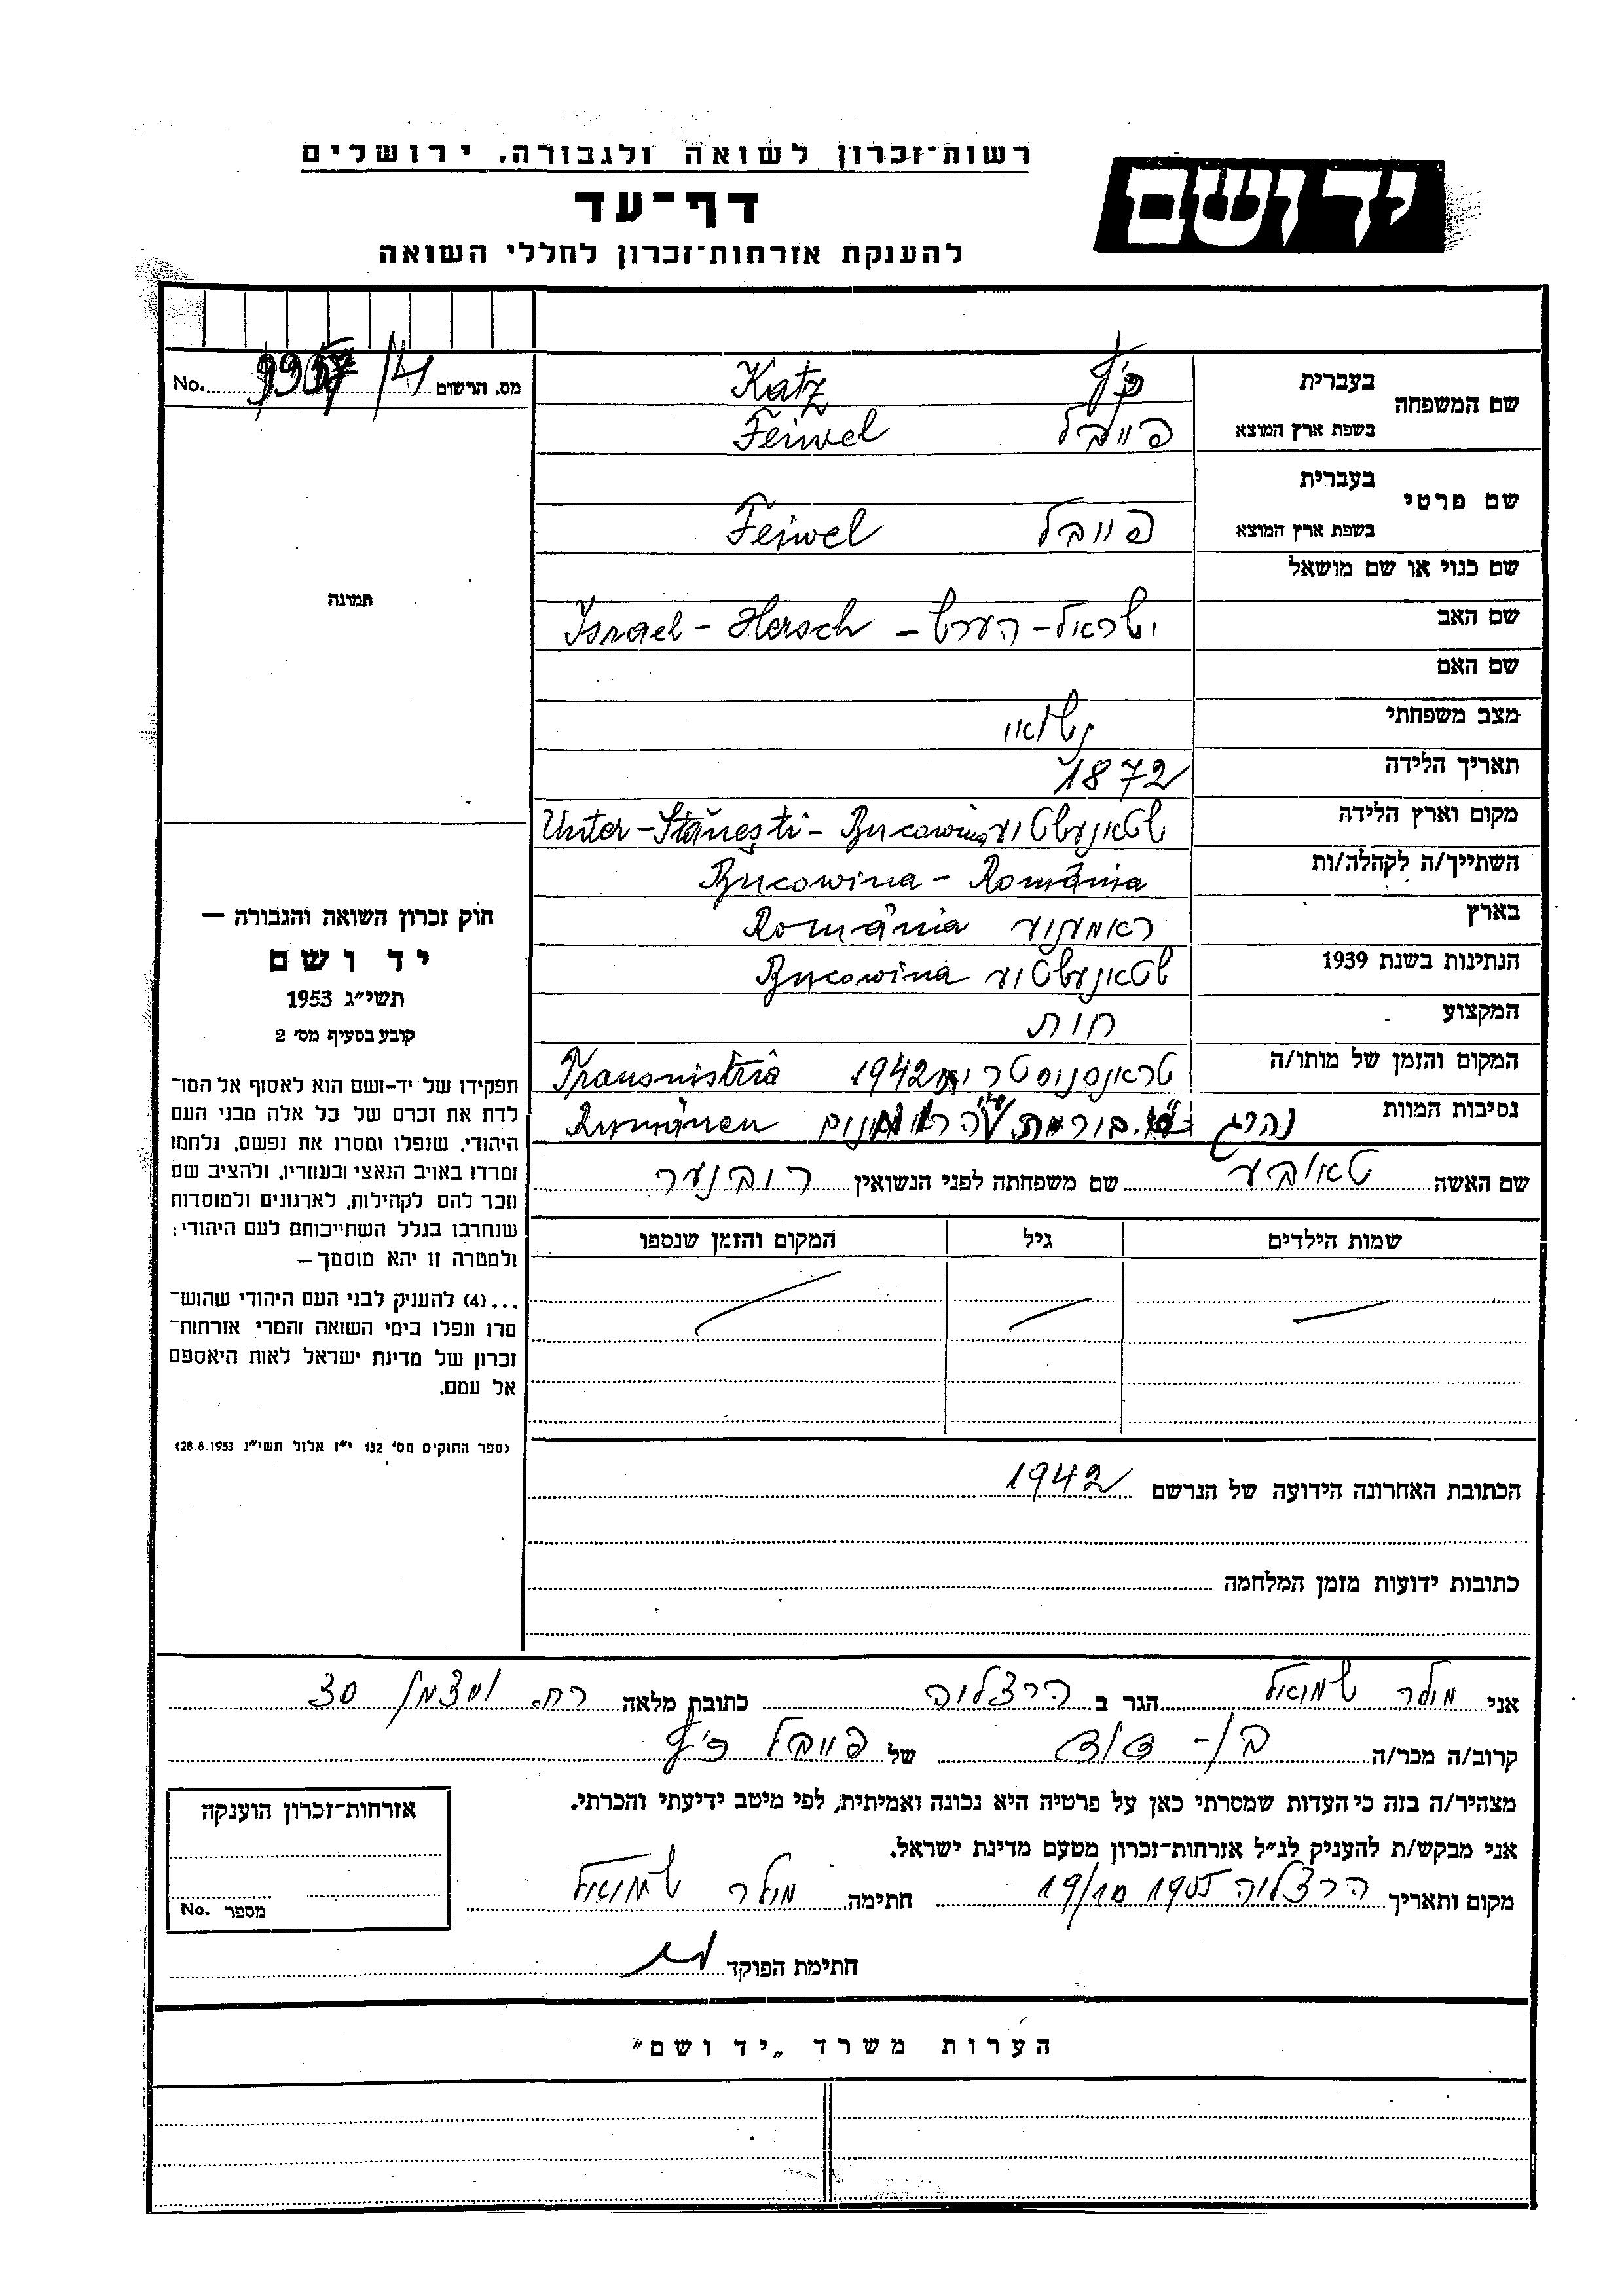 רשות־זכרון לשואה ולגבורה, ירושלים
יד ושם
דף־עד
להענקת אזרחות־זכרון לחללי השואה
מס. הרשום No.
שם המשפחה בעברית כ״ץ Katz
בשפת ארץ המוצא פייבל Feiwel
שם פרטי בעברית
בשפת ארץ המוצא פייבל Feiwel
שם כנוי או שם מושאל
שם האב ישראל - הערש - Israel - Hersch
שם האם
מצב משפחתי נשוי
תאריך הלידה 1872
מקום וארץ הלידה Unter - Stăneşti - Bucowina
השתייך/ה לקהלה/ות Bucowina - România
בארץ România
הנתינות בשנת 1939 Bucowina
המקצוע
המקום והזמן של מותו/ה 1942 Transnistria
נסיבות המוות נהרג Rumänen
שם האשה טאובע שם משפחתה לפני הנשואין רובנער
שמות הילדים גיל המקום והזמן שנספו
הכתובת האחרונה הידועה של הנרשם 1942
כתובות ידועות מזמן המלחמה
תמונה
חוק זכרון השואה והגבורה —
יד ושם
תשי״ג 1953
קובע בסעיף מס׳ 2
תפקידו של יד־ושם הוא לאסוף אל המו־
לדת את זכרם של כל אלה מבני העם
היהודי, שנפלו ומסרו את נפשם, נלחמו
ומרדו באויב הנאצי ובעוזריו, ולהציב שם
וזכר להם לקהילות, לארגונים ולמוסדות
שנחרבו בגלל השתייכותם לעם היהודי;
ולמטרה זו יהא מוסמך —
...(4) להעניק לבני העם היהודי שהוש־
מדו ונפלו בימי השואה והמרי אזרחות־
זכרון של מדינת ישראל לאות היאספם
אל עמם.
(ספר החוקים מס׳ 132 י״ז אלול תשי״ג 28.8.1953)
אני מולר שמואל הגר ב הרצליה כתובת מלאה רח. ויצמן 30
קרוב/ה מכר/ה בן - דוד של פייבל כ״ץ
מצהיר/ה בזה כי העדות שמסרתי כאן על פרטיה היא נכונה ואמיתית, לפי מיטב ידיעתי והכרתי.
אני מבקש/ת להעניק לנ״ל אזרחות־זכרון מטעם מדינת ישראל.
מקום ותאריך הרצליה חתימה מולר שמואל
חתימת הפוקד
אזרחות־זכרון הוענקה
מספר No.
הערות משרד „יד ושם"